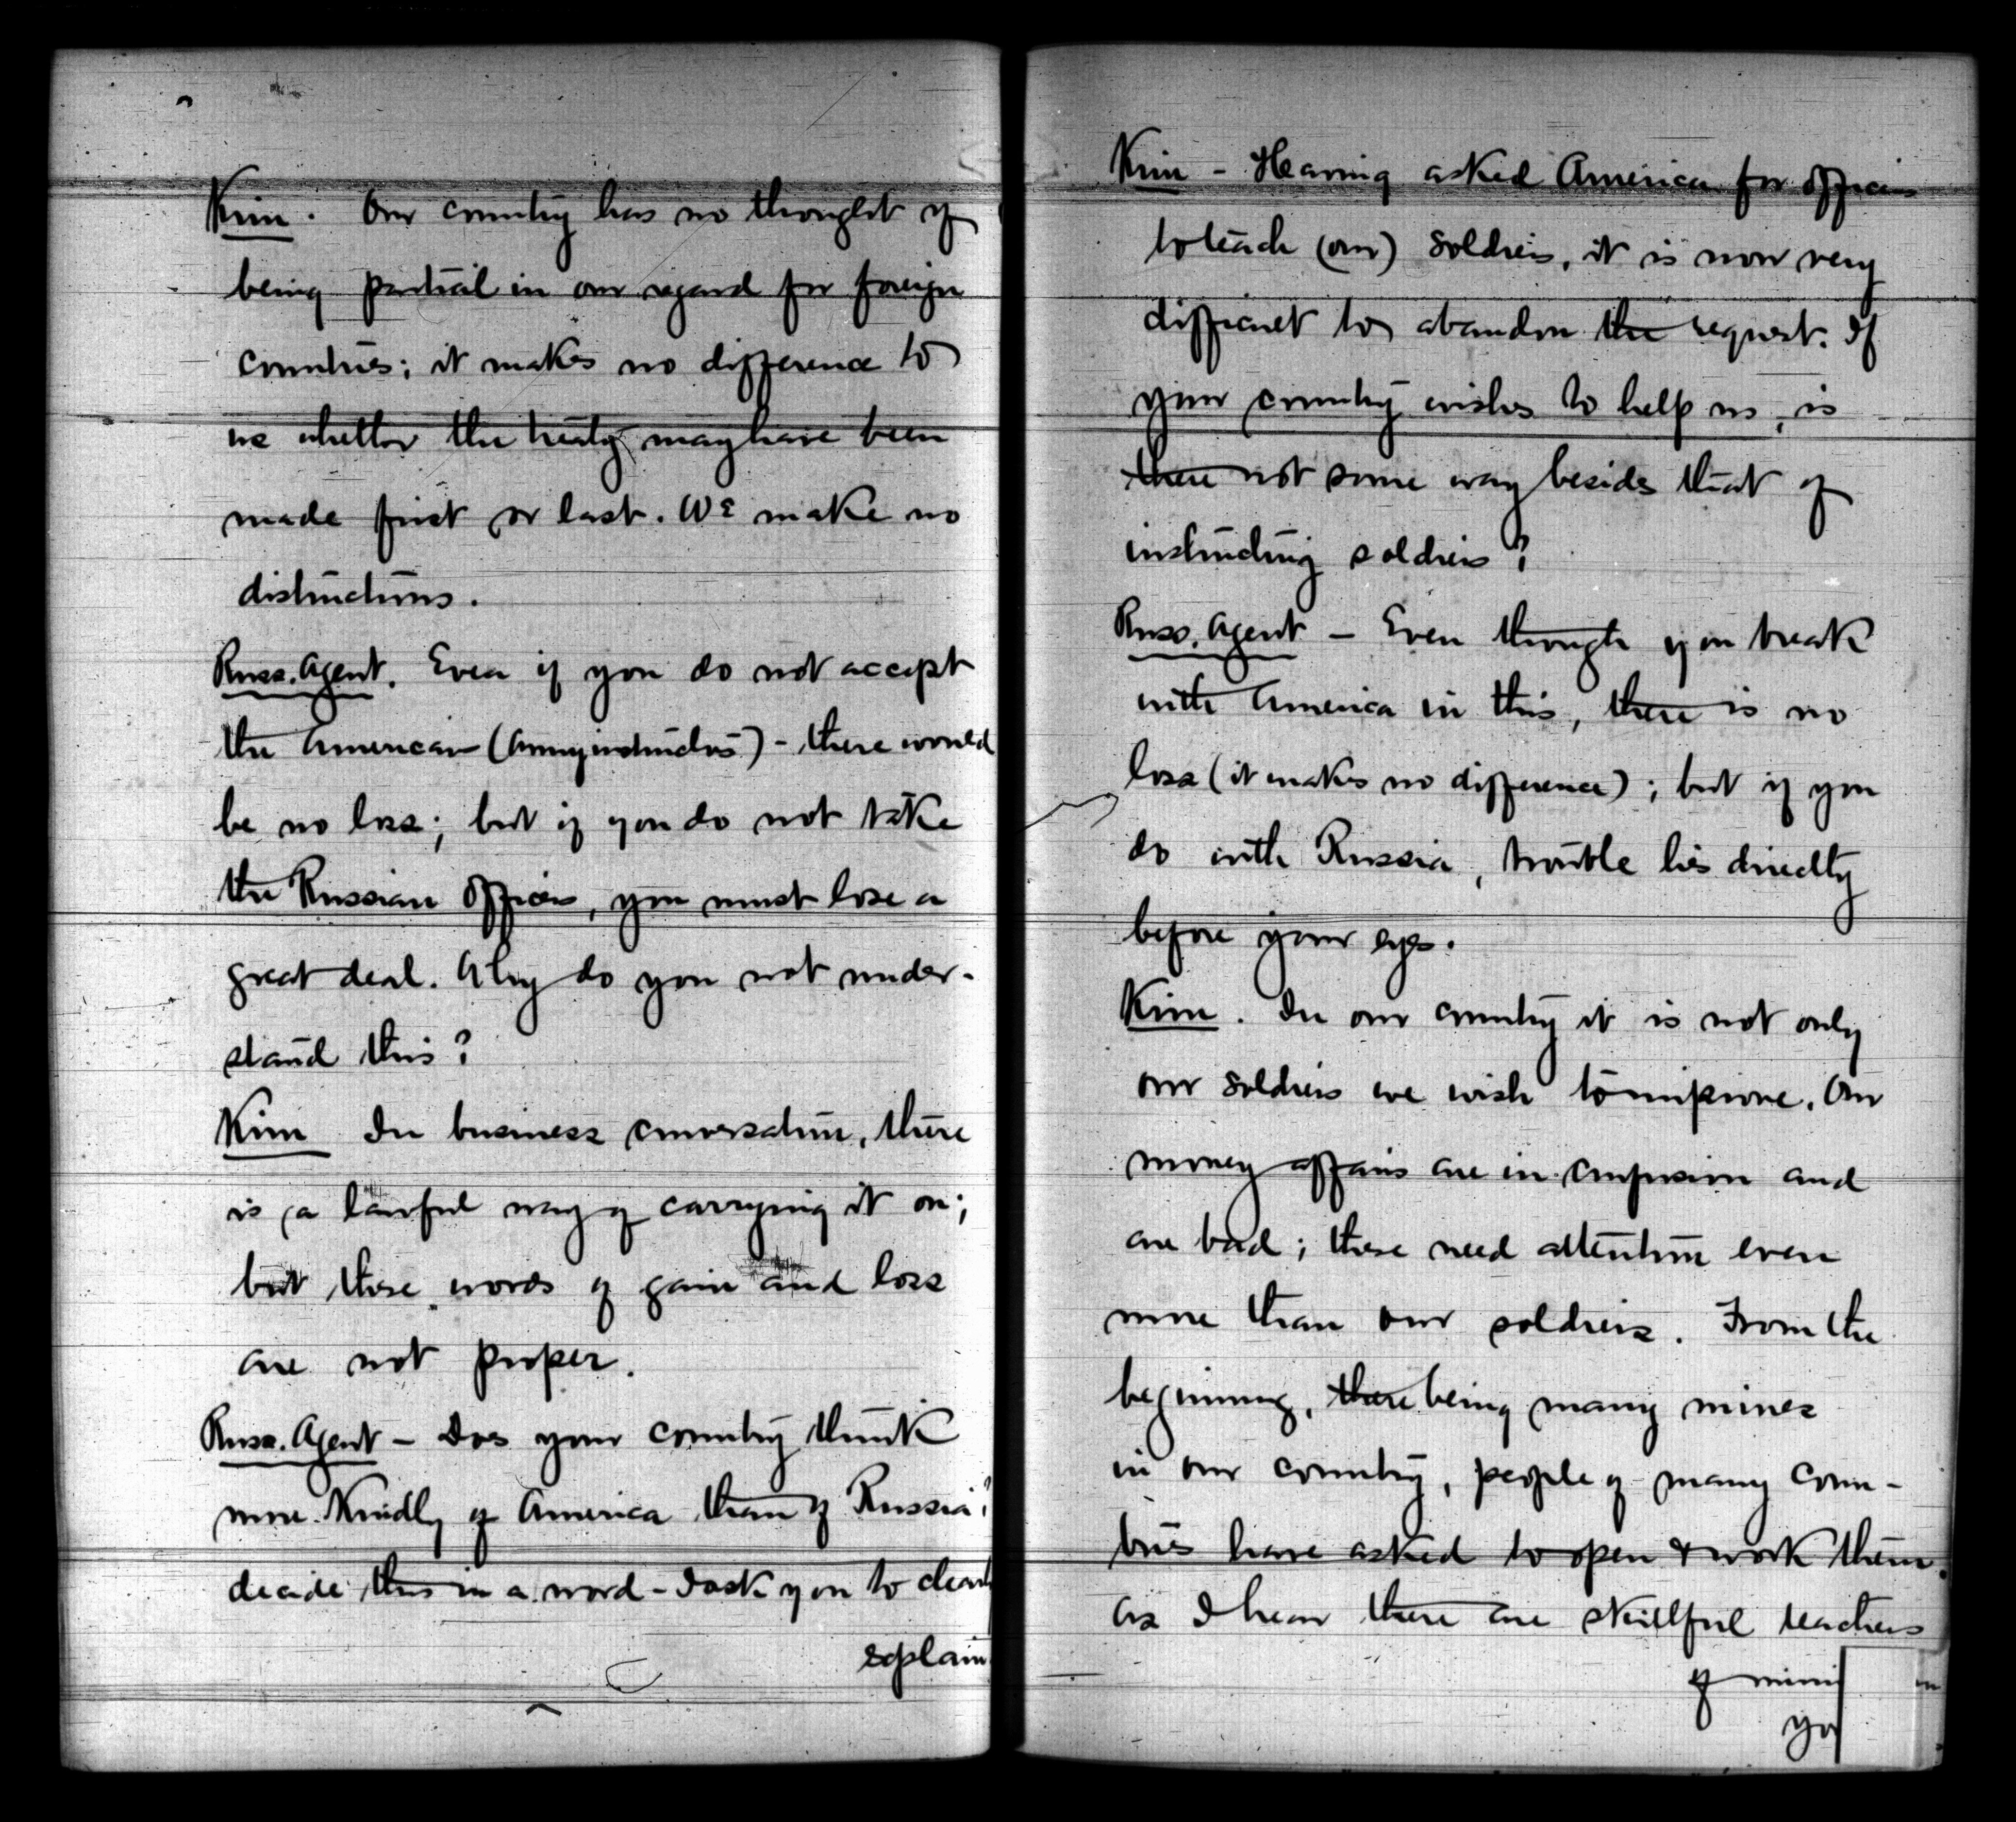 Kim. Our country has no thought of
being partial in our regard for foreign
countries; it makes no difference to
us whether the treaty may have been
made first or last. We make no
distinctions.
Russ. Agent. Even if you do not accept
the American (Army instructors) - there would
be no loss; but if you do not take
the Russian officers, you must lose a
great deal. Why do you not under-
stand this?
Kim In business conversation, there
is a lawful way of carrying it on;
but these words of gain and loss
are not proper.
Russ. Agent - Does your country think
more kindly of America than of Russia?
decide this in a word - I ask you to clearly
explain
Kim - Having asked America for officers
to teach (our) soldiers, it is now very
difficult to abandon the request. If
your country wishes to help us, is
there not some way besides that of
instructing soldiers?
Russ. Agent - Even though you break
with America in this, there is no
loss (it makes no difference); but if you
do with Russia, trouble lies directly
before your eyes.
Kim. In our country it is not only
our soldiers we wish to improve. Our
money affairs are in confusion and
are bad; these need attention even
more than our soldiers. From the
beginning, there being many mines
in our country, people of many coun-
tries have asked to open & work them.
As I hear there are skillful teachers
of mini
yo